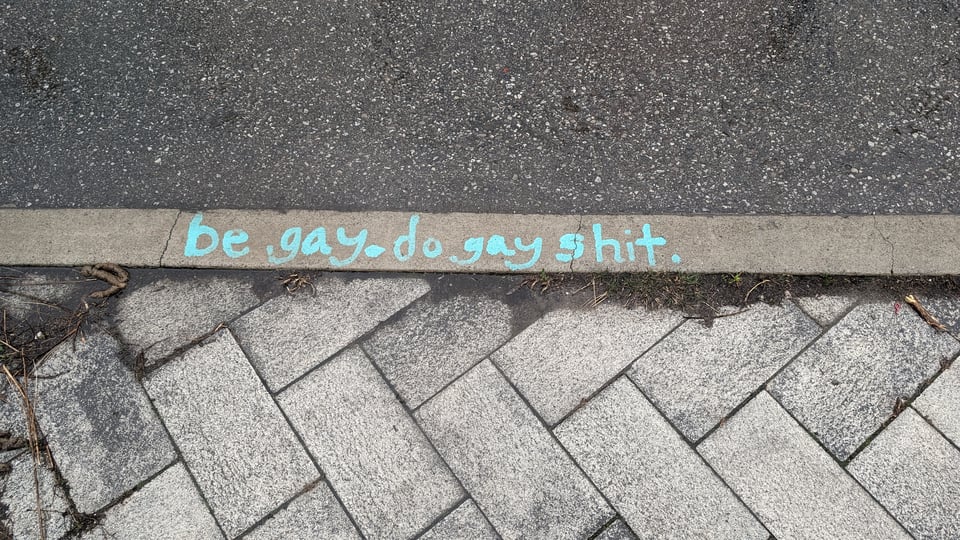 be gay. do gay shit.